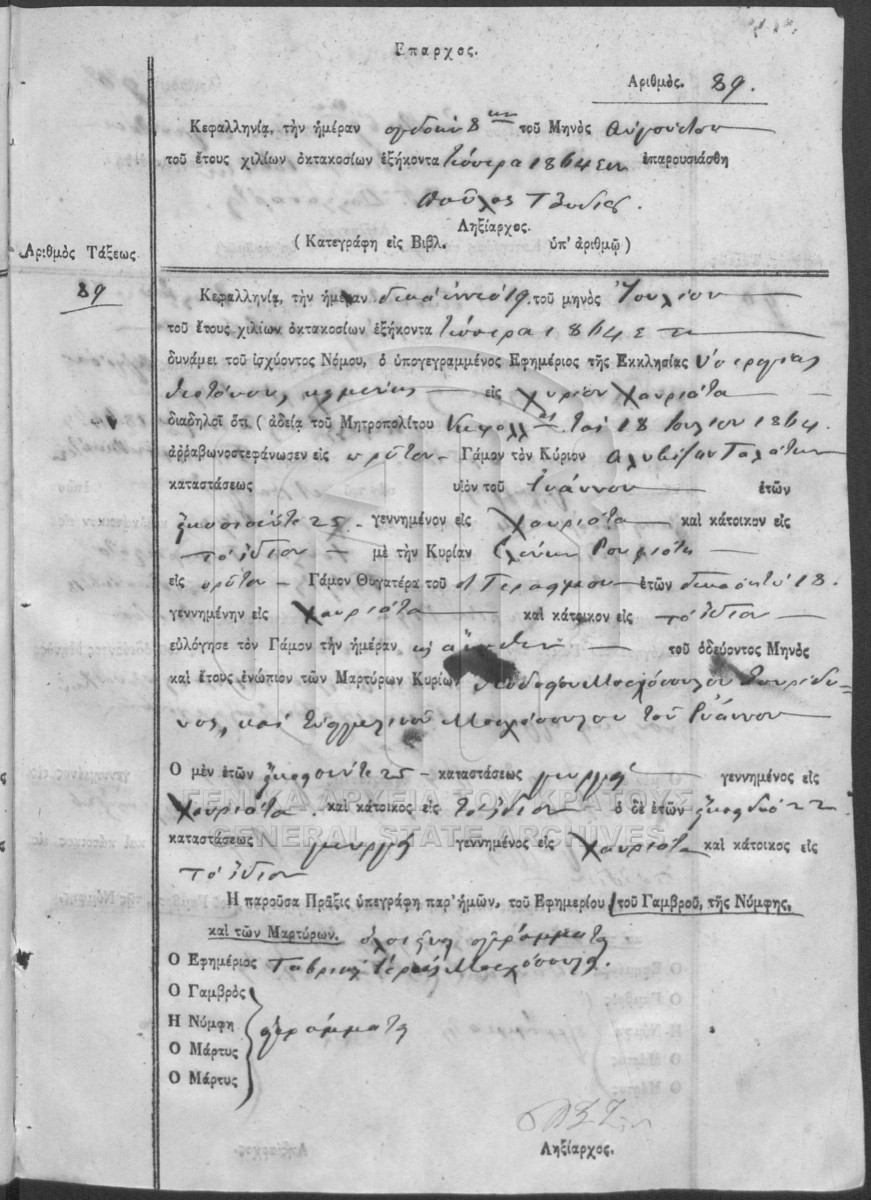 Επαρχος.
Αριθμὸς. 89.
Κεφαλληνίᾳ, τὴν ἡμέραν ὀγδόην 8ην τοῦ Μηνὸς Αὐγούστου
τοῦ ἔτους χιλίων ὀκτακοσίων ἑξήκοντα τέσσερα 1864 ἐπαρουσιάσθη
Παῦλος
Ληξίαρχος.
( Κατεγράφη εἰς Βιβλ. ὑπ' ἀριθμῷ )
Αριθμὸς Τάξεως
89
Κεφαλληνίᾳ, τὴν ἡμέραν δεκαεννέα 19. τοῦ μηνὸς Ἰουλίου
τοῦ ἔτους χιλίων ὀκτακοσίων ἑξήκοντα τέσσερα 1864
δυνάμει τοῦ ἰσχύοντος Νόμου, ὁ ὑπογεγραμμένος Εφημέριος τῆς Εκκλησίας Ὑπεραγίας
Θεοτόκου εἰς χωρίον Χαυριάτα
διαδηλοῖ ὅτι ( ἀδείᾳ τοῦ Μητροπολίτου Κεφαλλ. 18 Ἰουλίου 1864.
ἀῤῥαβωνοστεφάνωσεν εἰς πρῶτον Γάμον τὸν Κύριον
καταστάσεως υἱὸν τοῦ Ἰωάννου ἐτῶν
εἰκοσιπέντε 25. γεννημένον εἰς Χαυριάτα καὶ κάτοικον εἰς
τὸ ἴδιον μὲ τὴν Κυρίαν Ἑλένην
εἰς πρῶτον Γάμον Θυγατέρα τοῦ Γερασίμου ἐτῶν δεκαοκτώ 18.
γεννημένην εἰς Χαυριάτα καὶ κάτοικον εἰς τὸ ἴδιον
εὐλόγησε τὸν Γάμον τὴν ἡμέραν ὡς ἄνωθεν τοῦ ὁδεύοντος Μηνὸς
καὶ ἔτους ἐνώπιον τῶν Μαρτύρων Κυρίων Μοσχόπουλου Σπυρίδω-
νος, καὶ Εὐαγγελινοῦ Μοσχόπουλου τοῦ Ἰωάννου
Ο μὲν ἐτῶν εἰκοσιπέντε 25 καταστάσεως γεωργὸς γεννημένος εἰς
Χαυριάτα. καὶ κάτοικος εἰς τὸ ἴδιον ὁ δὲ ἐτῶν εἰκοσιδύο 22
καταστάσεως γεωργὸς γεννημένος εἰς Χαυριάτα καὶ κάτοικος εἰς
τὸ ἴδιον
Η παροῦσα Πρᾶξις ὑπεγράφη παρ' ἡμῶν, τοῦ Εφημερίου τοῦ Γαμβροῦ, τῆς Νύμφης,
καὶ τῶν Μαρτύρων. ὅλοι ἀγράμματοι
Ο Εφημέριος Γαβριὴλ Ἱερεὺς Μοσχόπουλος.
Ο Γαμβρὸς
Η Νύμφη ἀγράμματοι
Ο Μάρτυς
Ο Μάρτυς
Ληξίαρχος.
ΓΕΝΙΚΑ ΑΡΧΕΙΑ ΤΟΥ ΚΡΑΤΟΥΣ
GENERAL STATE ARCHIVES